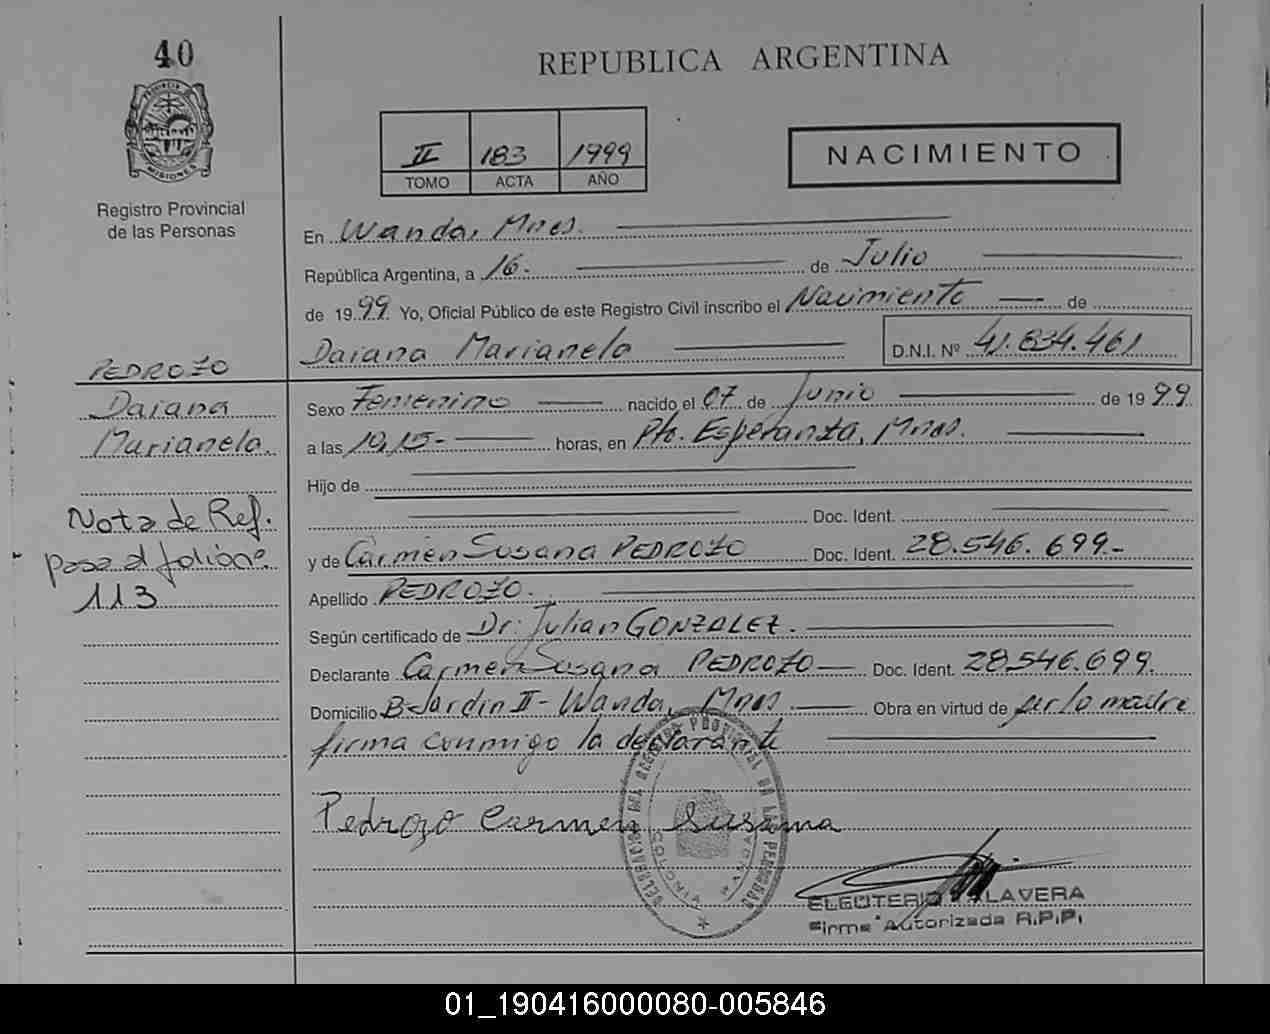 40
REPUBLICA ARGENTINA
PROVINCIA DE MISIONES
Registro Provincial
de las Personas
II 183 1999
TOMO ACTA AÑO
NACIMIENTO
En Wanda, Mnes.
República Argentina, a 16. de Julio
de 1999 Yo, Oficial Público de este Registro Civil inscribo el Nacimiento de
Daiana Marianela D.N.I. Nº 41.834.461
PEDROZO
Daiana
Marianela.
Nota de Ref.
pasa al folio nº
113
Sexo Femenino nacido el 07 de Junio de 1999
a las 10,15- horas, en Pto. Esperanza, Mnes.
Hijo de
Doc. Ident.
y de Carmen Susana PEDROZO Doc. Ident. 28.546.699-
Apellido PEDROZO.
Según certificado de Dr. Julian GONZALEZ.
Declarante Carmen Susana PEDROZO Doc. Ident. 28.546.699.
Domicilio B-Jardin II- Wanda, Mnes. Obra en virtud de ser la madre
firma conmigo la declarante
Pedrozo Carmen Susana
DELEGACION DEL REGISTRO PROVINCIAL DE LAS PERSONAS
WANDA
ELEUTERIO TALAVERA
Firma Autorizada R.P.P.
01_190416000080-005846